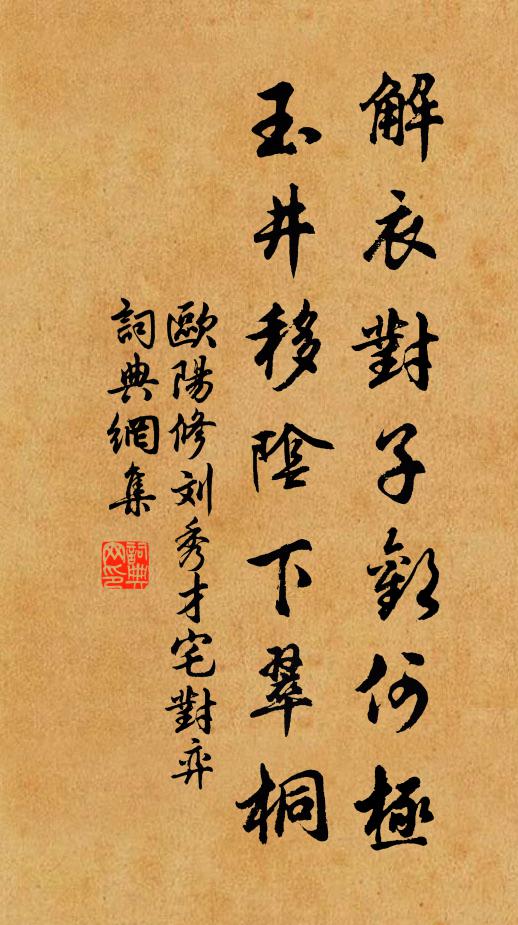 解衣對子歡何極
玉井移陰下翠桐
歐陽修刘秀才宅對弈
詞典網集
詞典
网印